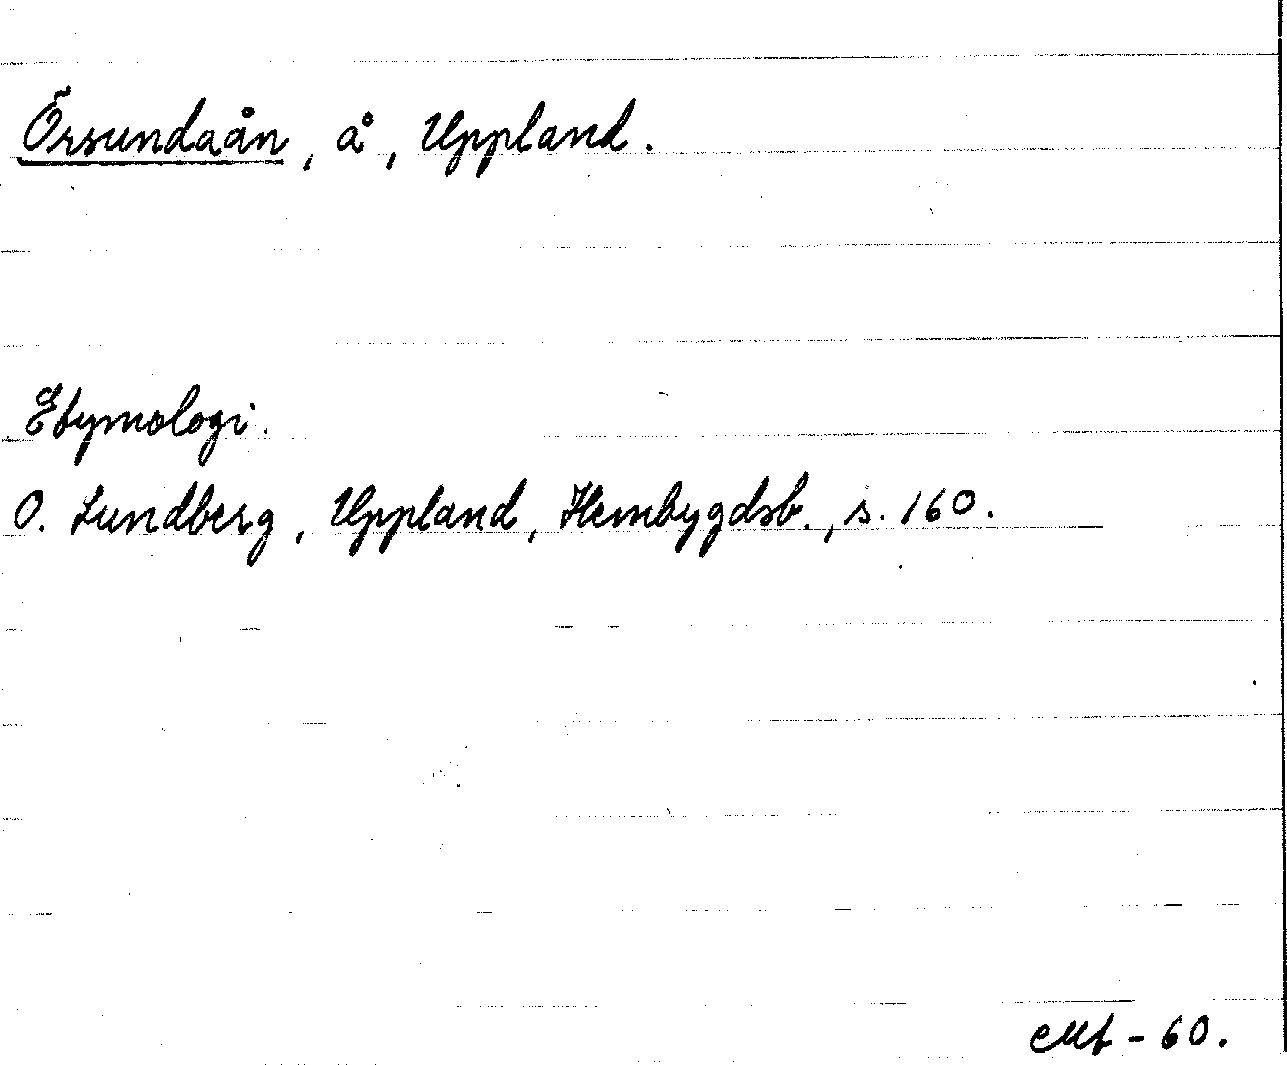 Örsundaån, å, Uppland.
Etymologi.
O. Lundberg, Uppland, Hembygdsb., s. 160.
- 60.